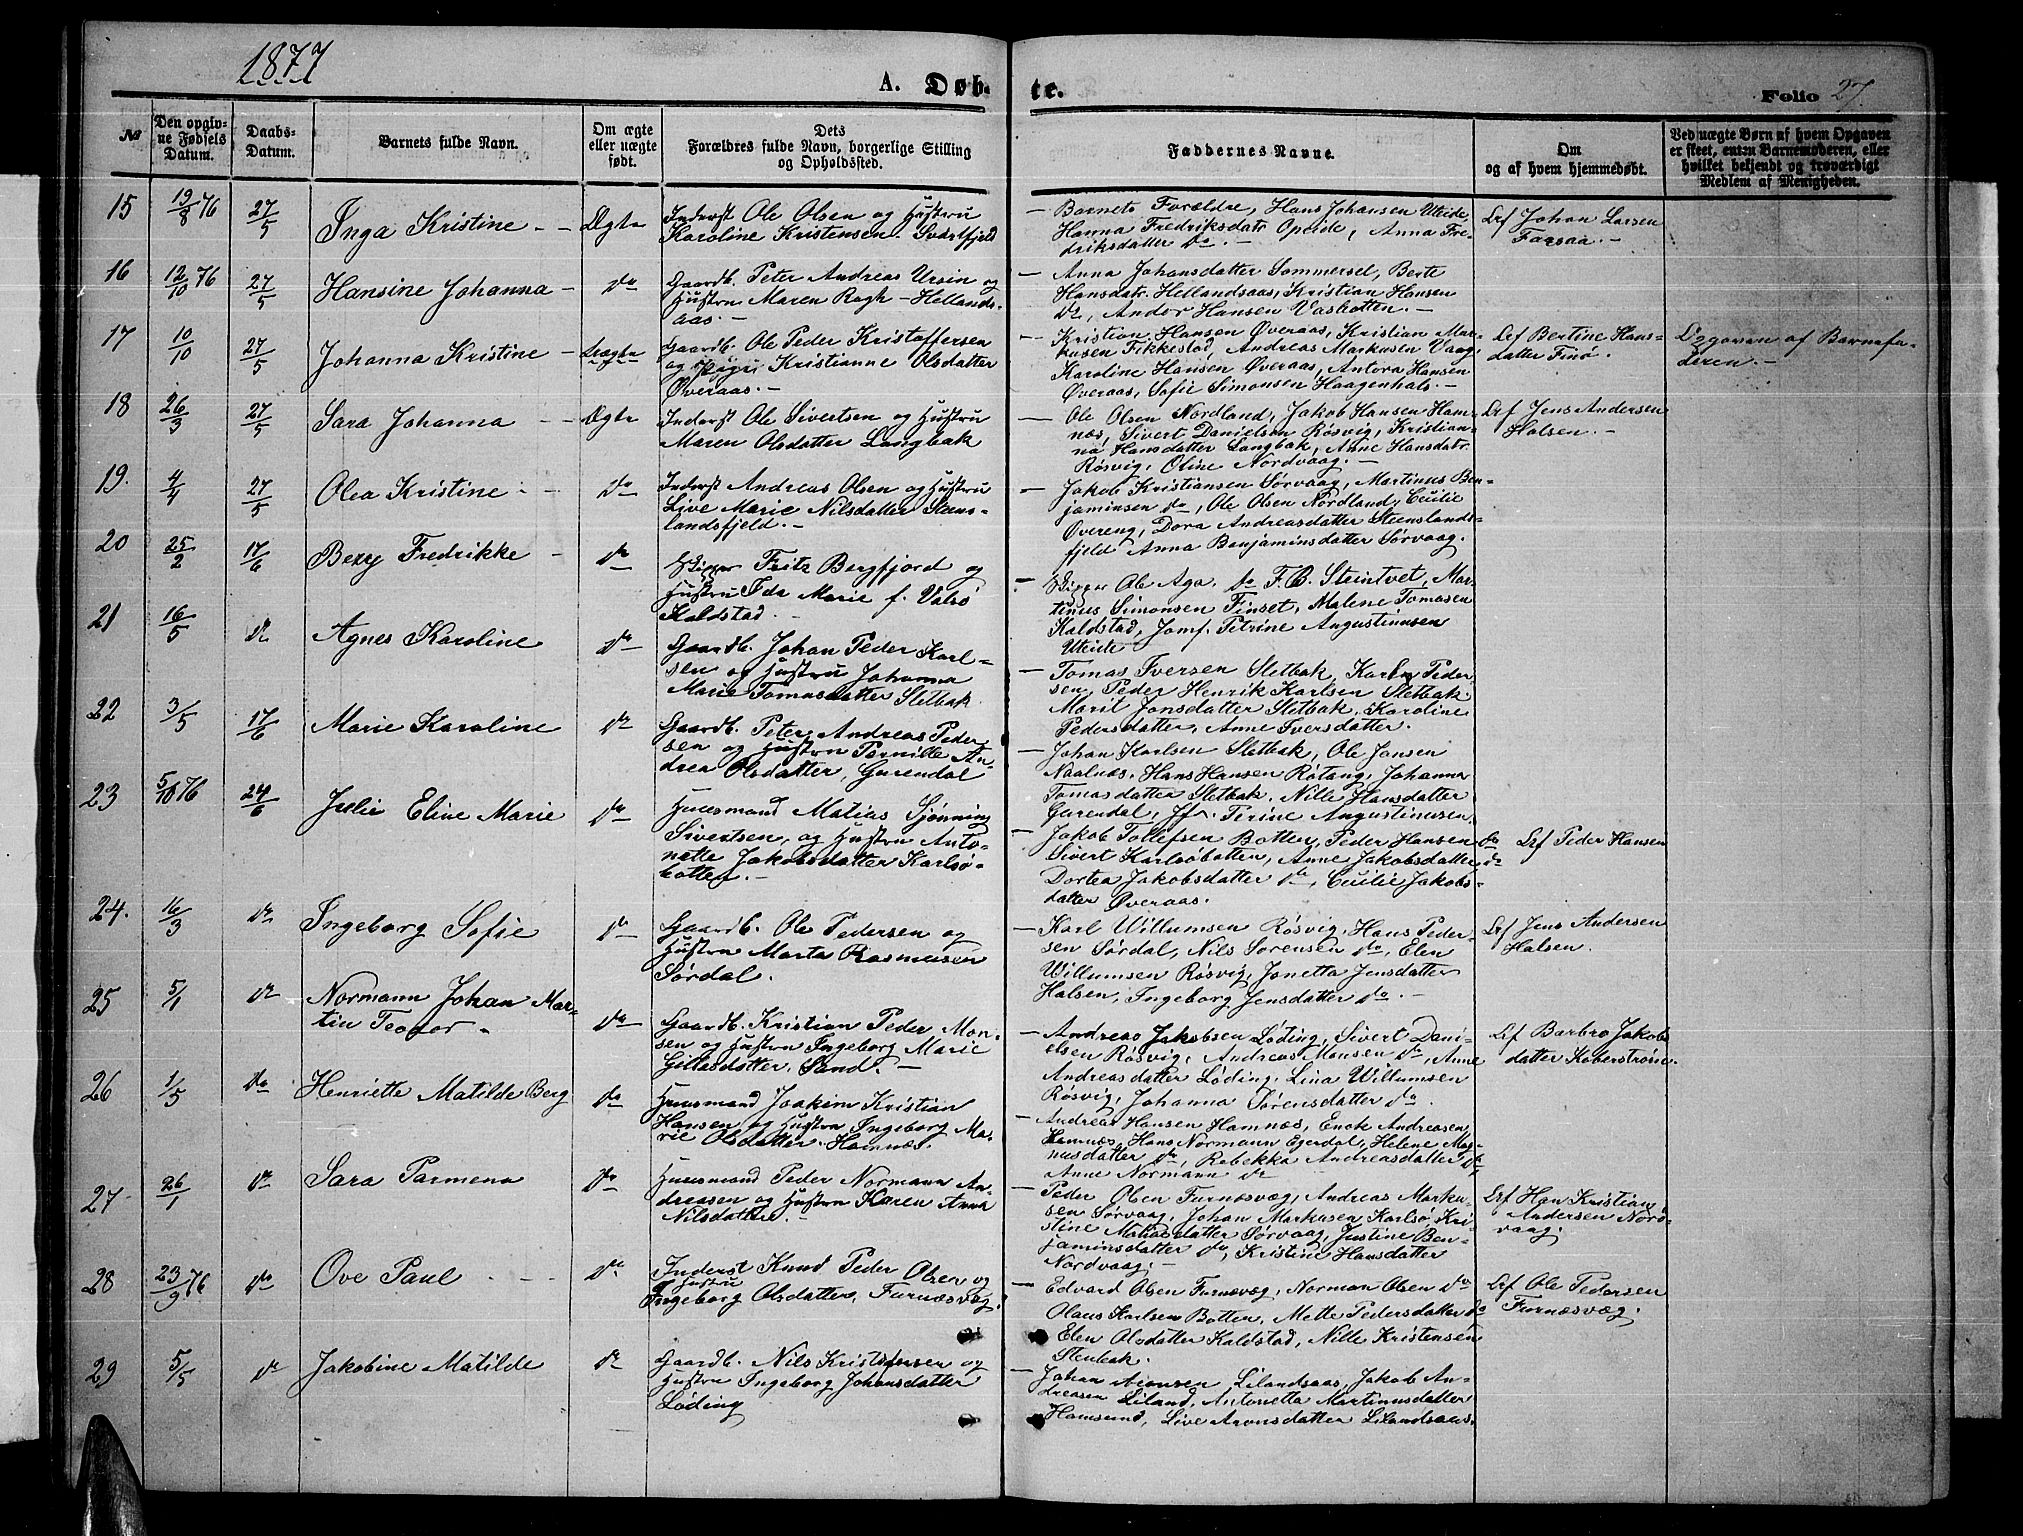 1877
A. Døb- te.
Folio 27.
№
Den opgiv-
ne Fødsels
Datum.
Daabs-
Datum.
Barnets fulde Navn.
Om ægte
eller uægte
født.
Dets
Forældres fulde Navn, borgerlige Stilling
og Opholdssted.
Faddernes Navne.
Om
og af hvem hjemmedøbt.
Ved uægte Børn af hvem Opgaven
er skeet, enten Barnemoderen, eller
hvilket bekjendt og troværdigt
Medlem af Menigheden.
15 19/8 76 27/5 Inga Kristine - - Ægte
Inderst Ole Olsen og Hustru
Karoline Kristensen. Svartfjeld
- Barnets Forældre, Hans Johansen Uteide,
Hanna Fredriksdatr Opeide, Anna Fre-
driksdatter do. -
Lrf Johan Larsen
Farsaa. -
16 12/10 76 27/5 Hansine Johanna - do
Gaardb. Peter Andreas Ursin og
Hustru Maren Bagh - Hellands-
aas. -
- Anna Johansdatter Sommersel, Berte
Hansdatr. Hellandsaas, Kristian Hansen
do, Andor Hansen Vasbotten. -
17 10/10 27/5 Johanna Kristine - Uægte
Gaardb. Ole Peder Kristoffersen
og Pige Kristianne Olsdatter
Øveraas. -
- Kristian Hansen Øveraas, Kristian Mar-
kusen Fikkestad, Andreas Markusen Vaag,
Karoline Hansen Øveraas, Antora Hansen
Øveraas, Sofie Simonsen Haagenhals. -
Lrf Bertine Hans-
datter Finø.
Opgaven af Barnefa-
deren. -
18 26/3 27/5 Sara Johanna - Ægte
Inderst Ole Sivertsen og Hustru
Maren Olsdatter Langbak
- Ole Olsen Nordland, Jakob Hansen Ham-
næs, Sivert Danielsen Røsvig, Kristian-
na Hansdatter Langbak, Anne Hansdatr.
Røsvig, Oline Nordvaag. -
Lrf Jens Andersen
Halsen. -
19. 4/4 27/5 Olea Kristine - - do
Inderst Andreas Olsen og Hustru
Live Marie Nilsdatter Stens-
landsfjeld. -
- Jakob Kristiansen Sørvaag, Martinus Ben-
jaminsen do, Ole Olsen Nordland, Cecilie
Øvereng, Dora Andreasdatter Steenslands-
fjeld Anna Benjaminsdatter Sørvaag.
20 25/2 17/6 Berg Fredrikke - do
Skipper Fritz Bergfjord og
Hustru Ida Marie f. Valsø
Kaldstad. -
- Skipper Ole Aga, do F. B. Steintvet, Mar-
tinus Simonsen Finset, Malene Tomasen
Kaldstad, Jomf. Petrine Augustinusen
Uteide -
21 16/5 do Agnes Karoline do
Gaardb. Johan Peder Karl-
sen og Hustru Johanna
Marie Tomasdatter Sletbak.
- Tomas Iversen Sletbak, Karl Peder-
sen, Peder Henrik Karlsen Sletbak.
Marit Jonsdatter Sletbak. Karoline
Pedersdatter, Anne Iversdatter.
22 3/5 17/6 Marie Karoline do
Gaardb. Peter Andreas Peder-
sen og Hustru Pernille An-
drea Olsdatter, Gurendal
- Johan Karlsen Sletbak, Ole Jensen
Naalnæs, Hans Hansen Røtang, Johanna
Tomasdatter Sletbak. Nille Hansdatter
Gurendal, Jfr. Perine Augustinussen.
23 5/10 76 24/6 Julie Eline Marie do
Huusmand Matias Sjønning
Sivertsen, og Hustru Anto-
nette Jakobsdatter Karlsø-
botten. -
- Jakob Tollefsen Botten, Peder Hansen do
Sivert Karlsøbotten, Anne Jakobsdatter do
Dortea Jakobsdatter do, Cecilie Jakobs-
datter Øveraas.
Lrf Peder Hansen
24. 16/3 do Ingeborg Sofie do
Gaardb. Ole Pedersen og
Hustru Marta Rasmusen
Sørdal.
- Karl Willumsen Røsvig, Hans Peder-
sen Sørdal, Nils Sørensen do, Elen
Willumsen Røsvig, Jonetta Jensdatter
Halsen, Ingeborg Jensdatter do. -
Lrf Jens Andersen
Halsen.
25 5/1 do Normann Johan Mar-
tin Teodor - do
Gaardb. Kristian Peder Mon-
sen og Hustru Ingeborg Marie
Gillasdatter, Sand. -
- Andreas Jakobsen Løding, Sivert Dani-
elsen Røsvig, Andreas Monsen do, Anne
Andreasdatter Løding, Lina Willumsen
Røsvig, Johanna Sørensdatter do.
Lrf Barbro Jakobs
datter Kobberstrøm.
26 1/5 do Henriette Matilde Berg do
Huusmand Joakim Kristian
Hansen og Hustru Ingeborg Ma-
rie Olsdatter. Hamnæs.
- Andreas Hansen Hamnæs, Enok Andreasen,
Hamnæs, Hans Normann Egerdal, Helene Mag-
nusdatter do, Rebekka Andreasdatter do,
Anne Normann do
27 26/1 do Sara Parmena do
Huusmand Peder Normann An-
dreasen og Hustru Karen Anna
Nilsdatter. -
- Peder Olsen Furnæsvæg, Andreas Marku-
sen Sørvaag, Johan Markusen Karlsø, Kri-
stine Matiasdatter Sørvaag, Justine Ben-
jaminsdatter do, Kristine Hansdatter
Nordvaag. -
Lrf Han Kristian
Andersen Nord-
vaag.
28 23/9 76 do Ove Paul - - - do
Inderst Knud Peder Olsen og
Hustru
Ingeborg Olsdatter, Furnæsvæg.
- Edvard Olsen Furnæsvæg, Norman Olsen do
Olaus Karlsen Botten, Mette Pedersdatter do
Elen Olsdatter Kaldstad, Nille Kristensen
Stenbak.
Lrf Ole Pedersen
Furnæsvæg.
29 5/5 do Jakobine Matilde do
Gaardb. Nils Kristensen og
Hustru Ingeborg Johansdatter
Løding
- Johan Aronsen Lilandsaas, Jakob An-
dreasen Liland, Antonetta Martinusdatter
Hamsund, Live Aronsdatter Lilandsaas.